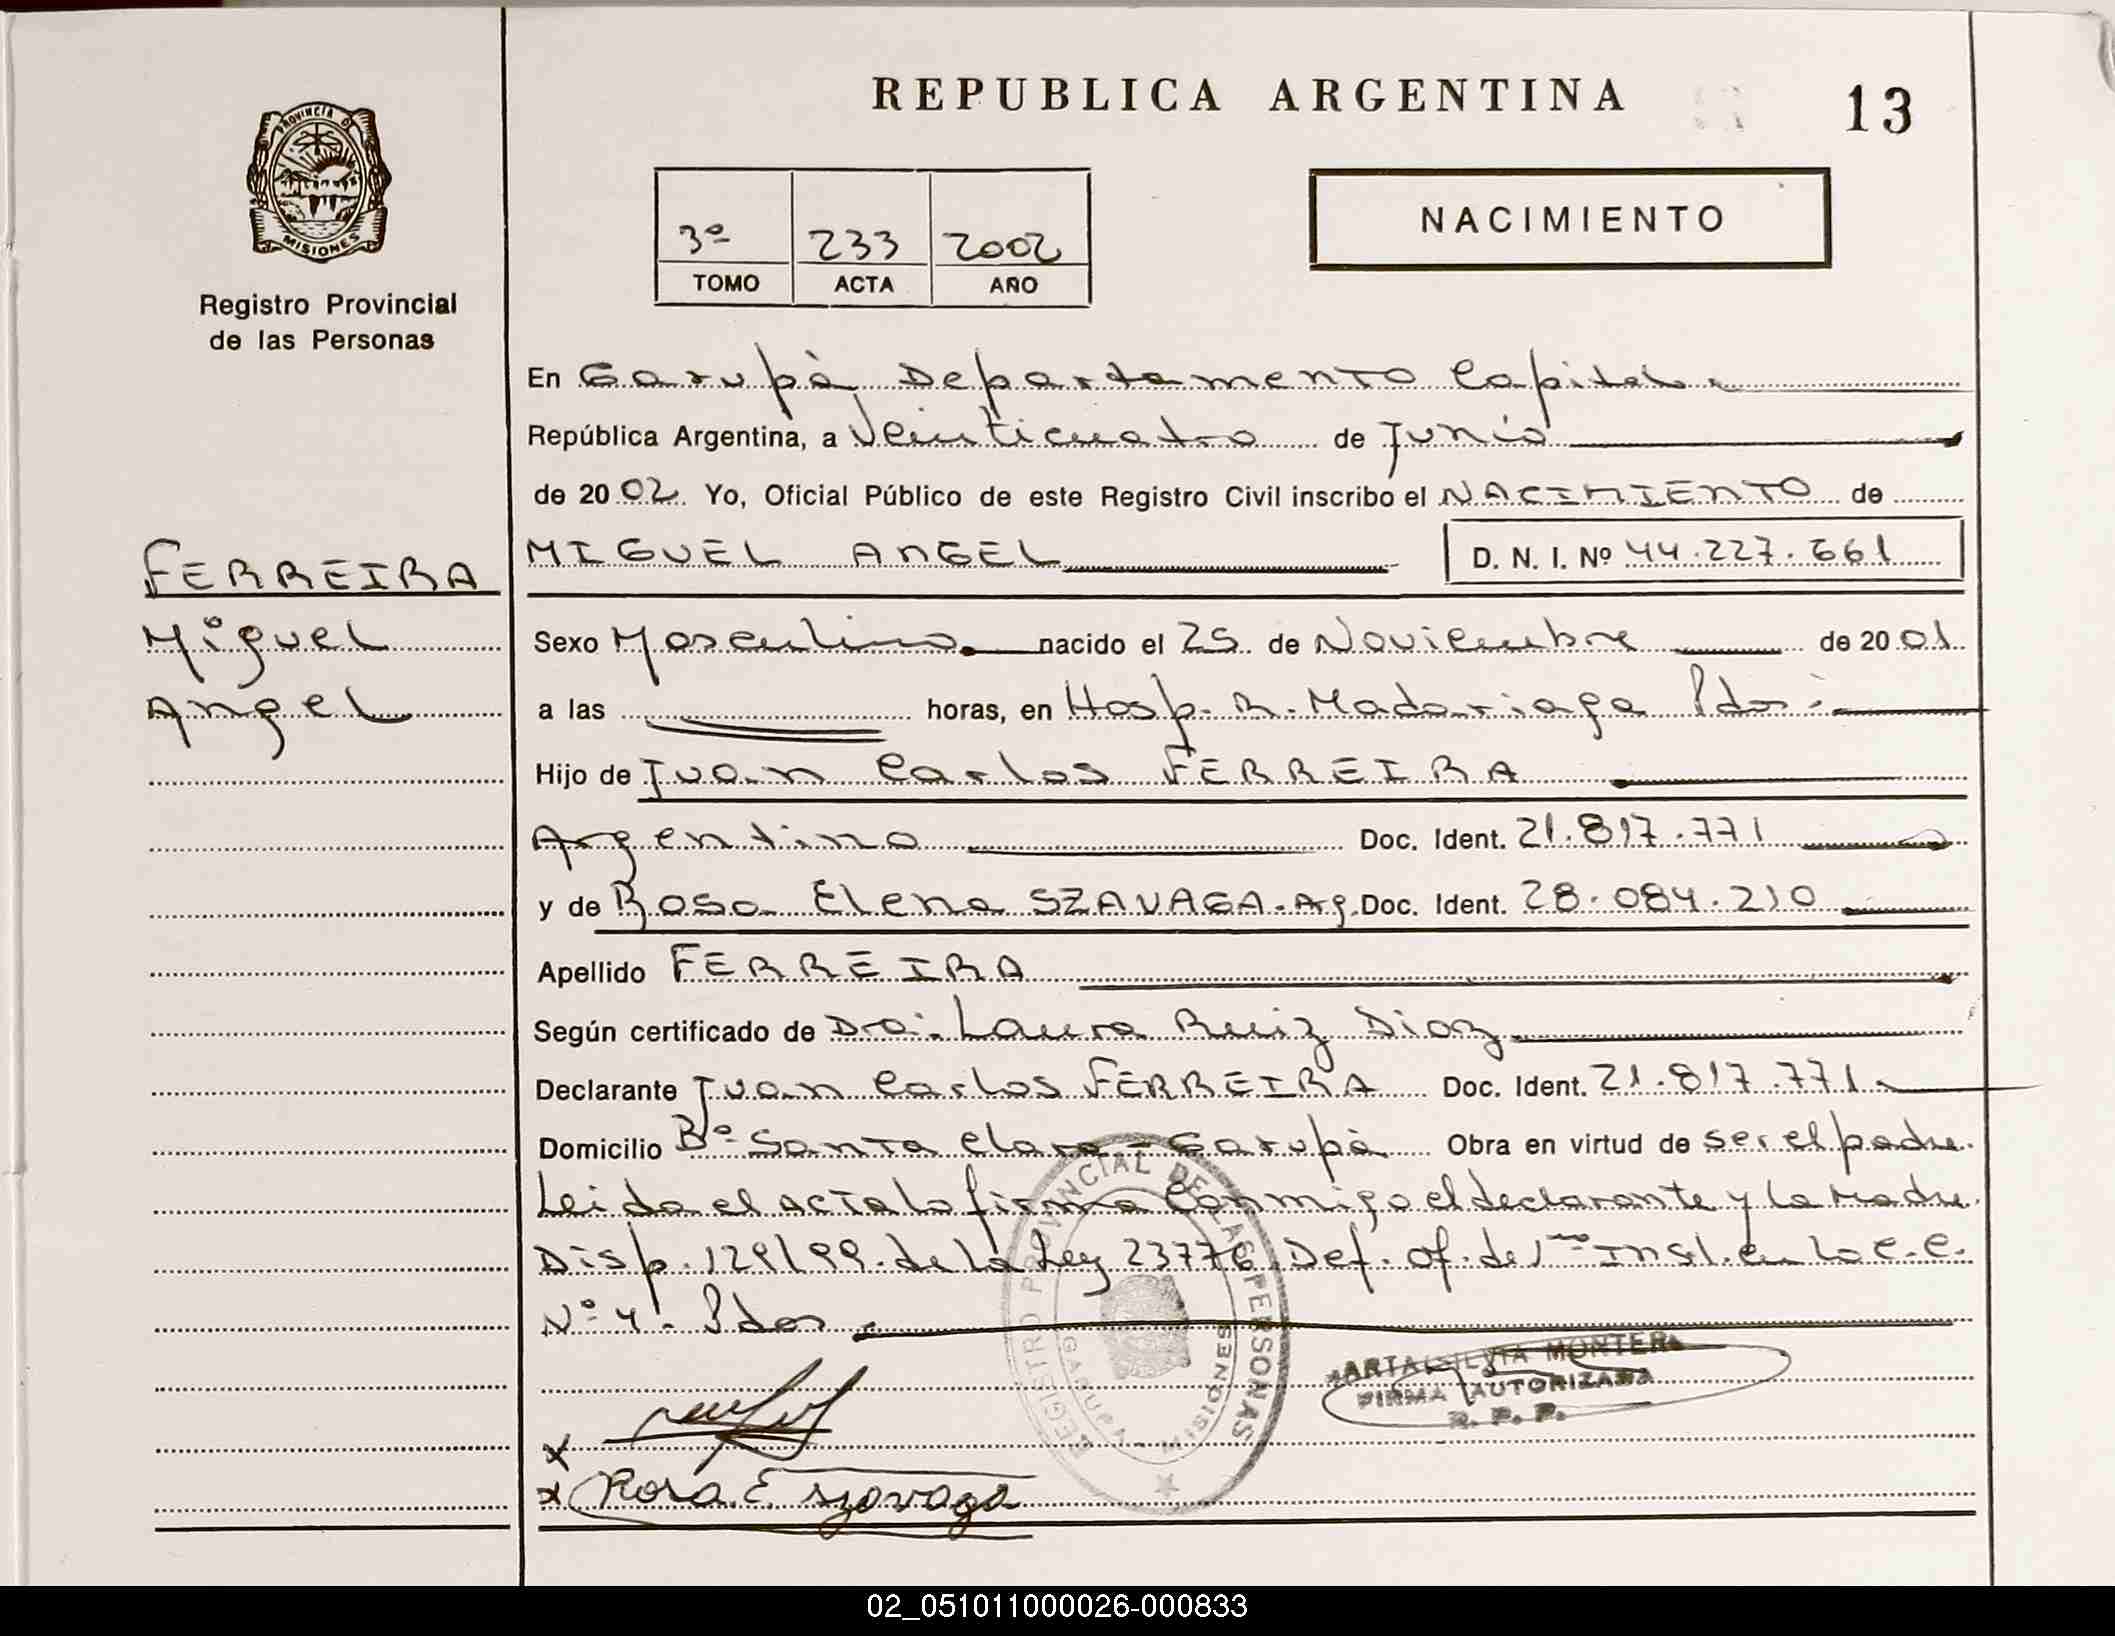 REPUBLICA ARGENTINA
13
PROVINCIA D
MISIONES
Registro Provincial
de las Personas
3º 233 2002
TOMO ACTA AÑO
NACIMIENTO
En Garupà Departamento Capital
República Argentina, a Veinticuatro de Junio
de 2002. Yo, Oficial Público de este Registro Civil inscribo el NACIMIENTO de
FERREIRA
Miguel
Angel
MIGUEL ANGEL D. N. I. Nº 44.227.661
Sexo Masculino nacido el 25 de Noviembre de 2001
a las horas, en Hosp. R. Madariaga Pdas.
Hijo de Juan Carlos FERREIRA
Argentino Doc. Ident. 21.817.771
y de Rosa Elena SZAVAGA. Arg. Doc. Ident. 28.084.210
Apellido FERREIRA
Según certificado de Dra. Laura Ruiz Diaz
Declarante Juan Carlos FERREIRA Doc. Ident. 21.817.771
Domicilio Bº Santa Clara - Garupà Obra en virtud de ser el padre.
Leida el acta la firma conmigo el declarante y la Madre.
Disp. 129/99. de la Ley 23776 Def. of. de 1ra Inst. en lo C.C.
Nº 4. Pdas.
REGISTRO PROVINCIAL DE LAS PERSONAS
GARUPA - MISIONES
ARTA SILVIA MONTER
FIRMA AUTORIZADA
R. P. P.
x
x Rosa E szavaga
02_051011000026-000833